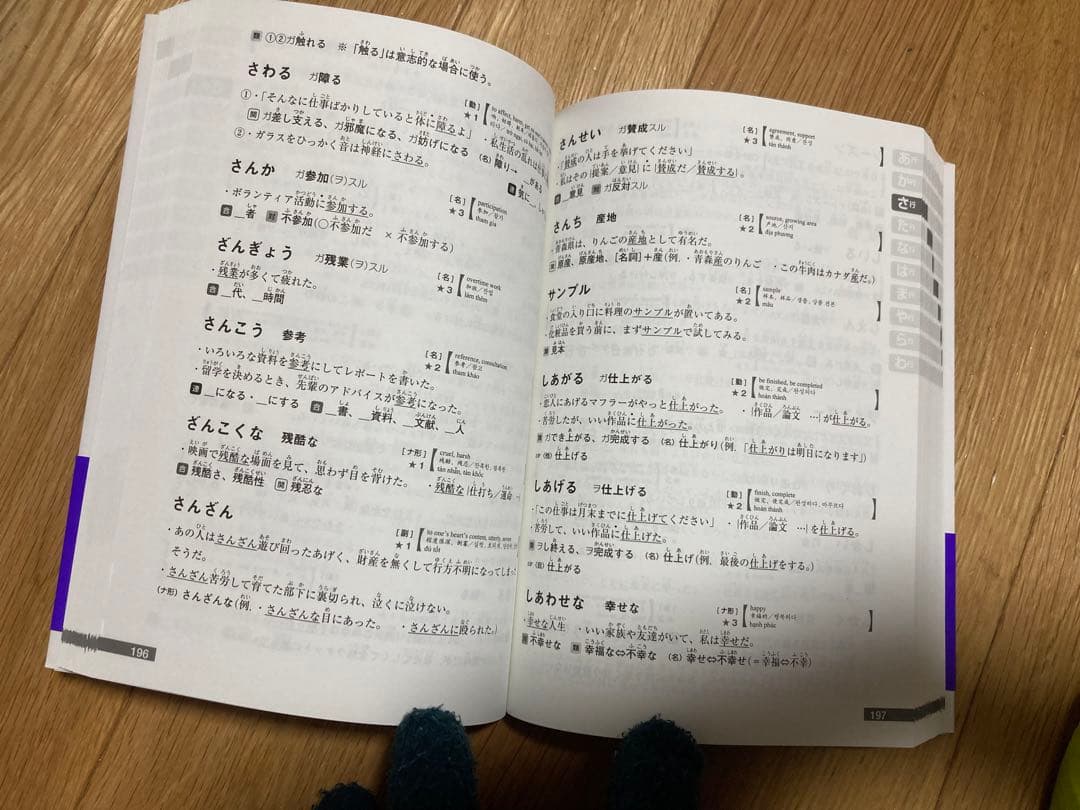 類 ①②ガ触れる ※「触る」は意志的な場合に使う。
さわる ガ障る [動] ★1
①・「そんなに仕事ばかりしていると体に障るよ」
関 ガ差し支える、ガ邪魔になる、ガ妨げになる (名)障り→ __がある
②・ガラスをひっかく音は神経にさわる。 ・私生活の乱れは
さんか ガ参加(ヲ)スル [名] ★3 participation 参加/참가 tham gia
・ボランティア活動に参加する。
合 __者 対 不参加(○不参加だ ×不参加する)
ざんぎょう ガ残業(ヲ)スル [名] ★3 overtime work 加班/잔업 làm thêm
・残業が多くて疲れた。
合 __代、__時間
さんこう 参考 [名] ★2 reference, consultation 参考/참고 tham khảo
・いろいろな資料を参考にしてレポートを書いた。
・留学を決めるとき、先輩のアドバイスが参考になった。
連 __になる・__にする 合 __書、__資料、__文献、__人
ざんこくな 残酷な [ナ形] ★1 cruel, harsh tàn nhẫn, tàn khốc
・映画で残酷な場面を見て、思わず目を背けた。 ・残酷な{仕打ち/運命
合 残酷さ、残酷性 関 残忍な
さんざん [副] ★1 to one's heart's content, utterly, severe
・あの人はさんざん遊び回ったあげく、財産を無くして行方不明になってしまっ
そうだ。
・さんざん苦労して育てた部下に裏切られ、泣くに泣けない。
(ナ形)さんざんな(例.・さんざんな目にあった。 ・さんざんに殴られた。)
196
さんせい ガ賛成スル [名] ★3 agreement, support 赞成、同意/찬성 tán thành
・「賛成の人は手を挙げてください」
・私はその{提案/意見}に{賛成だ/賛成する}。
合 __意見 対 ガ反対スル
さんち 産地 [名] ★2 source, growing area 产地/산지 địa phương
・青森県は、りんごの産地として有名だ。
関 原産、原産地、[名詞]+産(例.・青森産のりんご ・この牛肉はカナダ産だ。)
サンプル [名] ★2 sample mẫu
・食堂の入り口に料理のサンプルが置いてある。
・化粧品を買う前に、まずサンプルで試してみる。
類 見本
しあがる ガ仕上がる [動] ★2 be finished, be completed 做完、完成/완성되다 hoàn thành
・恋人にあげるマフラーがやっと仕上がった。 ・{作品/論文 …}が仕上がる。
・苦労したが、いい作品に仕上がった。
類 ガでき上がる、ガ完成する (名)仕上がり(例.「仕上がりは明日になります」)
☞(他)仕上げる
しあげる ヲ仕上げる [動] ★2 finish, complete hoàn thành
・「この仕事は月末までに仕上げてください」 ・{作品/論文 …}を仕上げる。
・苦労して、いい作品に仕上げた。
類 ヲし終える、ヲ完成する (名)仕上げ(例.最後の仕上げをする。)
☞(自)仕上がる
しあわせな 幸せな [ナ形] ★3 happy 幸福的/행복하다 hạnh phúc
・幸せな人生 ・いい家族や友達がいて、私は幸せだ。
対 不幸せな 類 幸福な⇔不幸な (名)幸せ⇔不幸せ(=幸福⇔不幸)
197
あ行
か行
さ行
た行
な行
は行
ま行
や行
ら行
わ行